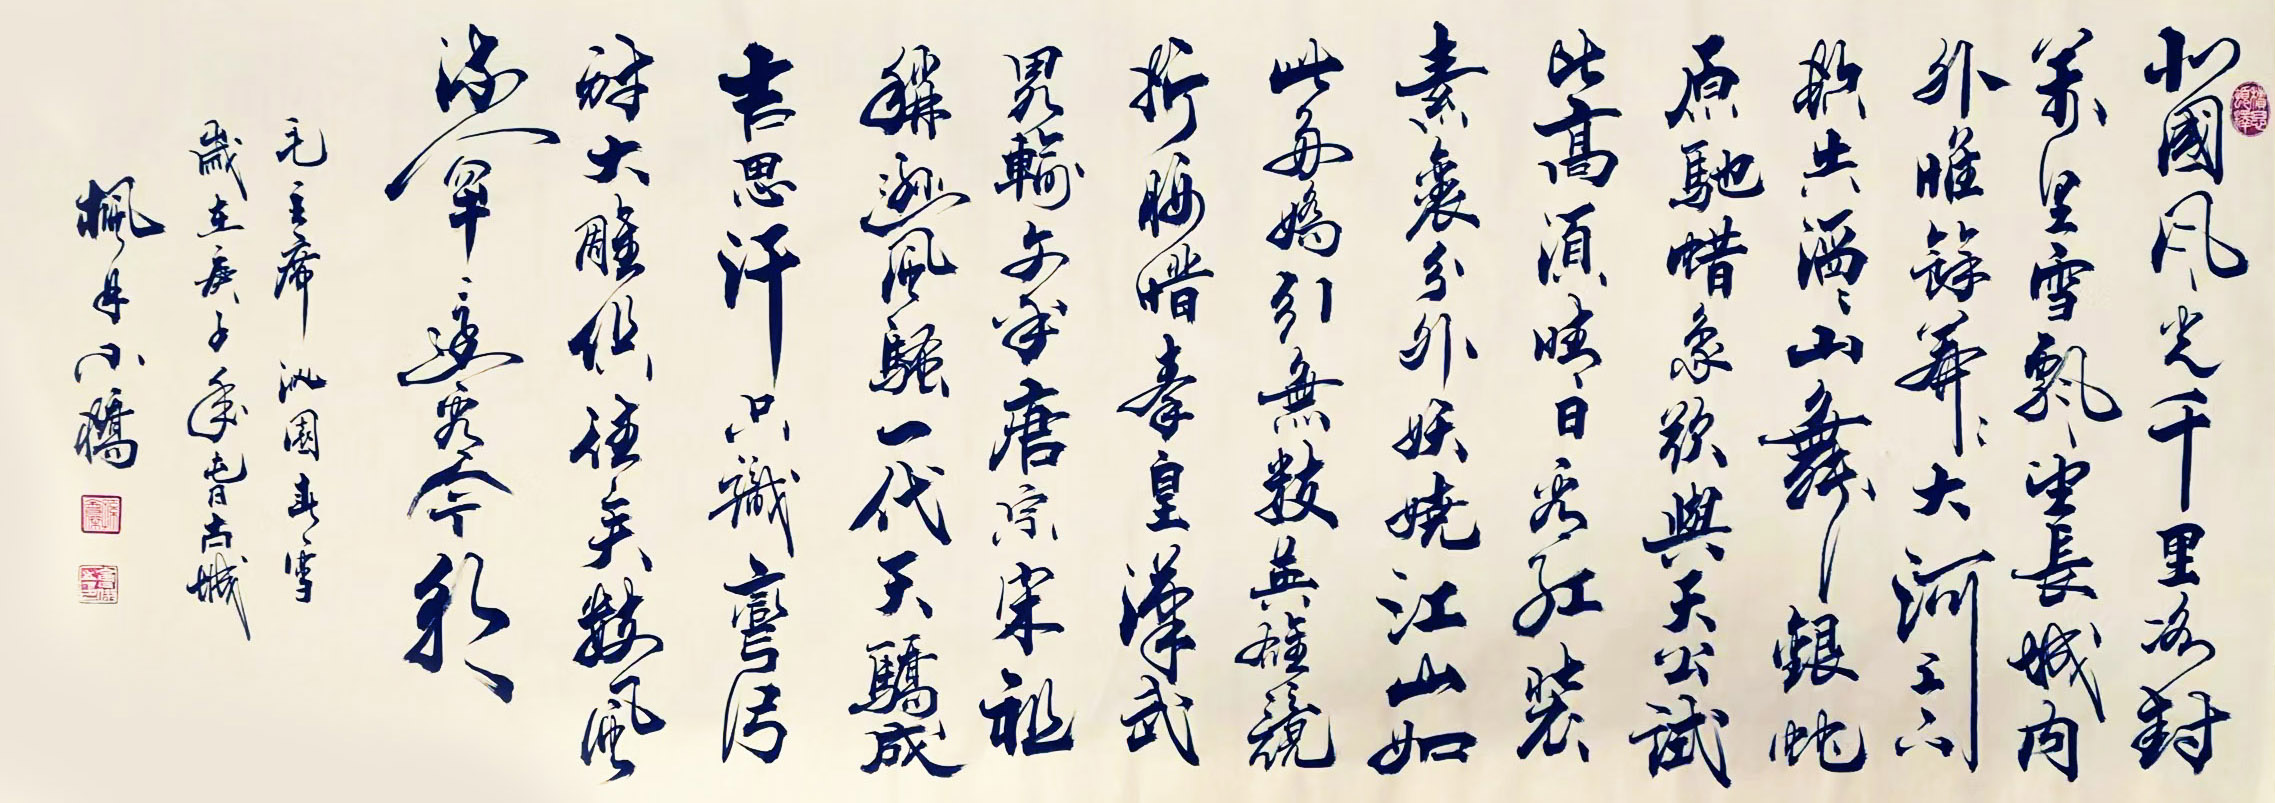 北國風光千里冰封
萬里雪飄望長城内
外惟餘莽々大河上下
頓失滔々山舞銀蛇
原馳蜡象欲與天公試
比高須晴日看紅裝
素裹分外妖嬈江山如
此多嬌引無數英雄競
折腰惜秦皇漢武
畧輸文采唐宗宋祖
稍遜風騷一代天驕成
吉思汗只識彎弓
射大雕俱往矣數風
流人物還看今朝
毛主席沁園春雪
歲在庚子年古城
楓小橋